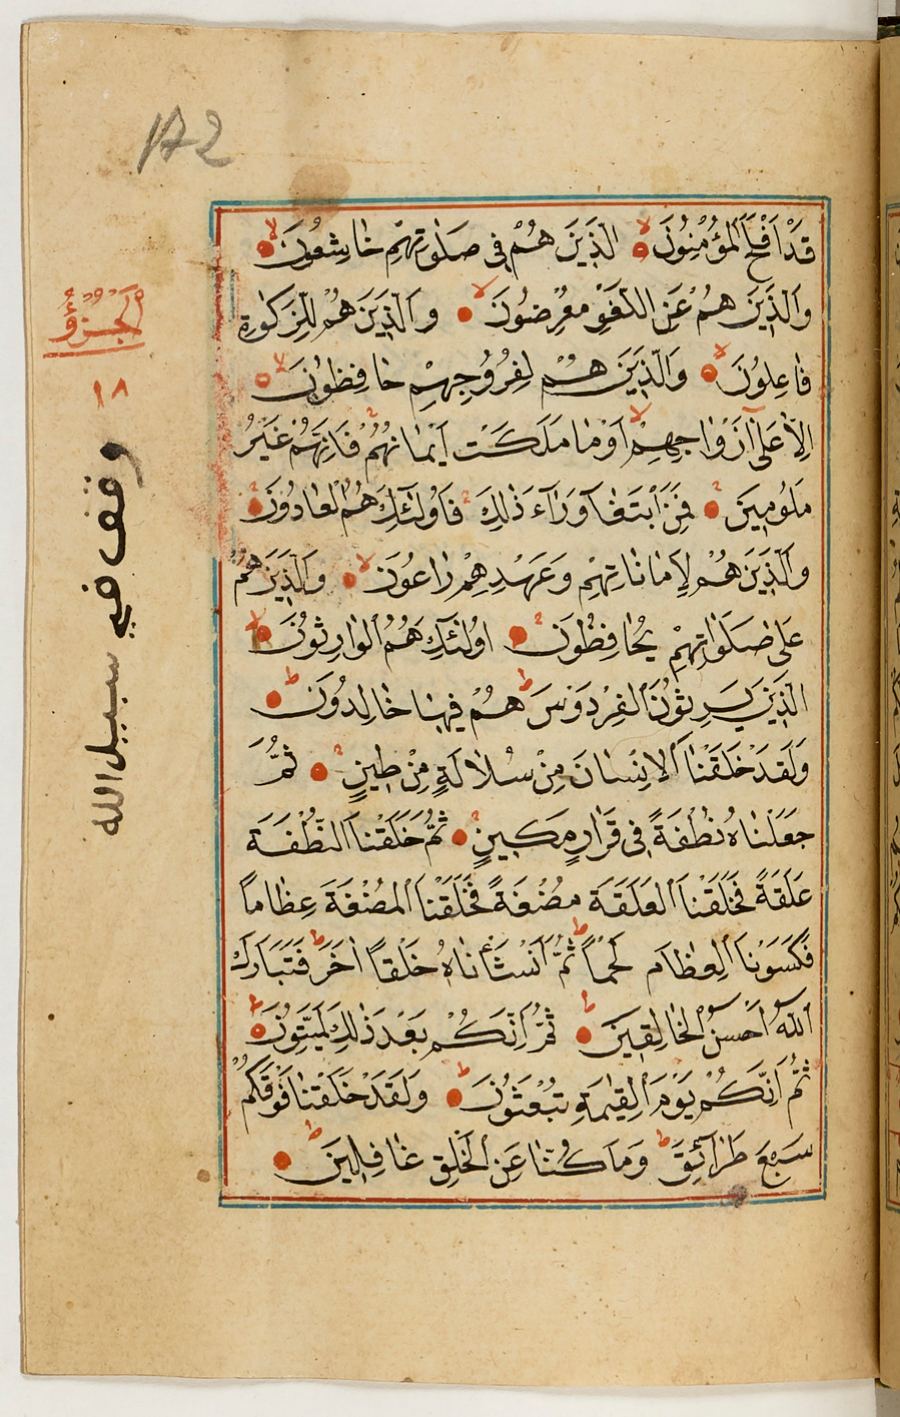 172
الجزؤ
١٨
وقف في سبيل الله
قَدْ اَفْلَحَ الْمُؤْمِنُونَ لا الَّذِينَ هُمْ فِي صَلٰوتِهِمْ خَاشِعُونَ لا
وَالَّذِينَ هُمْ عَنِ اللَّغْوِ مُعْرِضُونَ لا وَالَّذِينَ هُمْ لِلزَّكٰوةِ
فَاعِلُونَ لا وَالَّذِينَ هُمْ لِفُرُوجِهِمْ حَافِظُونَ لا
اِلَّا عَلٰى اَزْوَاجِهِمْ اَوْ مَا مَلَكَتْ اَيْمَانُهُمْ فَاِنَّهُمْ غَيْرُ
مَلُومِينَ فَمَنِ ابْتَغٰى وَرَآءَ ذٰلِكَ فَاُولٰئِكَ هُمُ الْعَادُونَ
وَالَّذِينَ هُمْ لِاَمَانَاتِهِمْ وَعَهْدِهِمْ رَاعُونَ لا وَالَّذِينَ هُمْ
عَلٰى صَلَوَاتِهِمْ يُحَافِظُونَ اُولٰئِكَ هُمُ الْوَارِثُونَ لا
الَّذِينَ يَرِثُونَ الْفِرْدَوْسَ ط هُمْ فِيهَا خَالِدُونَ ط
وَلَقَدْ خَلَقْنَا الْاِنْسَانَ مِنْ سُلَالَةٍ مِنْ طِينٍ ثُمَّ
جَعَلْنَاهُ نُطْفَةً فِي قَرَارٍ مَكِينٍ ثُمَّ خَلَقْنَا النُّطْفَةَ
عَلَقَةً فَخَلَقْنَا الْعَلَقَةَ مُضْغَةً فَخَلَقْنَا الْمُضْغَةَ عِظَامًا
فَكَسَوْنَا الْعِظَامَ لَحْمًا ط ثُمَّ اَنْشَأْنَاهُ خَلْقًا اٰخَرَ ط فَتَبَارَكَ
اللّٰهُ اَحْسَنُ الْخَالِقِينَ ط ثُمَّ اِنَّكُمْ بَعْدَ ذٰلِكَ لَمَيِّتُونَ ط
ثُمَّ اِنَّكُمْ يَوْمَ الْقِيٰمَةِ تُبْعَثُونَ ط وَلَقَدْ خَلَقْنَا فَوْقَكُمْ
سَبْعَ طَرَآئِقَ ط وَمَا كُنَّا عَنِ الْخَلْقِ غَافِلِينَ ط